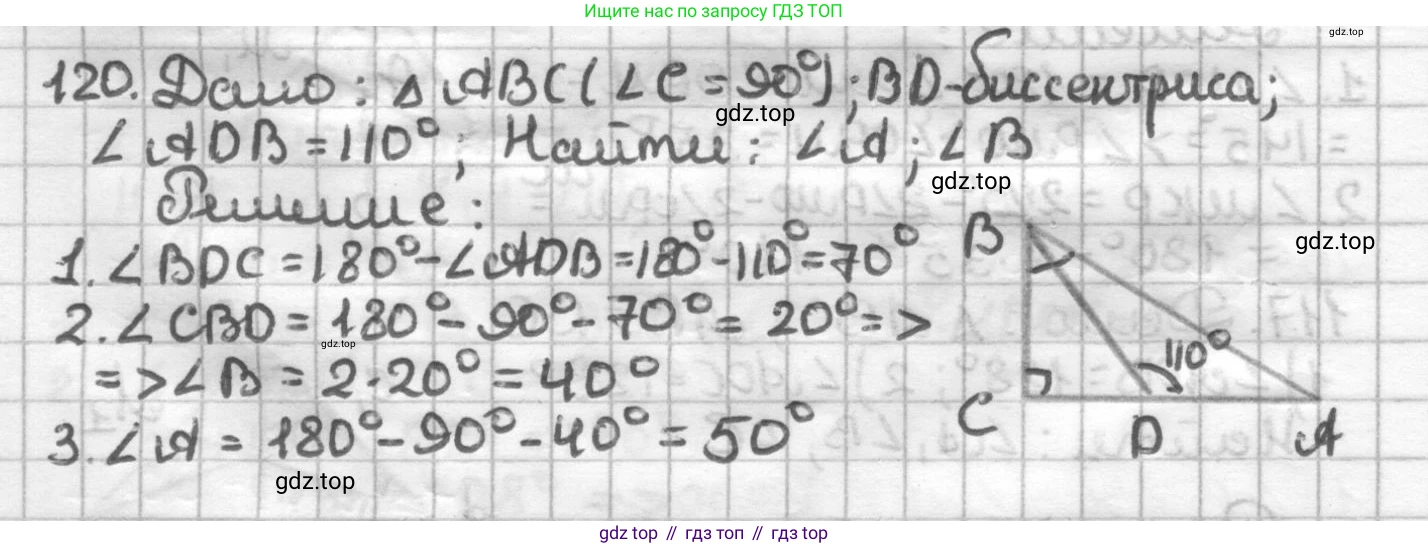 Ищите нас по запросу ГДЗ ТОП
gdz.top
120. Дано: △ABC (∠C = 90°); BD-биссектриса;
gdz.top
∠ADB = 110°; Найти: ∠A; ∠B
gdz.top
Решение:
1. ∠BDC = 180° - ∠ADB = 180° - 110° = 70°
B
gdz.top
2. ∠CBD = 180° - 90° - 70° = 20° =>
gdz.top
110°
=> ∠B = 2·20° = 40°
3. ∠A = 180° - 90° - 40° = 50°
C
D
A
gdz.top
gdz top // гдз топ // gdz.top